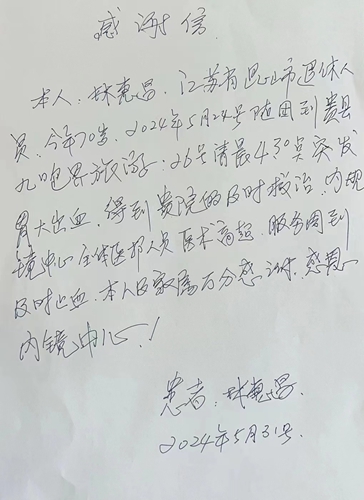 感谢信
本人:林惠昌、江苏省昆山市退休人
员、今年70岁、2024年5月24号随团到贵县
九口巴界旅游:26号清晨4:30点突发
胃大出血、得到贵院的及时救治、内现
境中心全体医护人员医术高超、服务周到
及时止血、本人及家属万分感谢、感恩
内镜中心!
患者:林惠昌
2024年5月31号.